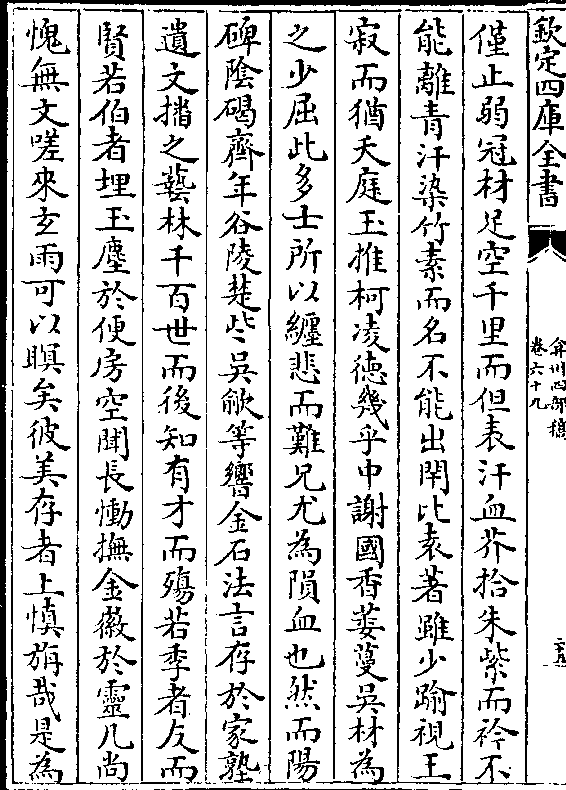 欽定四庫全書
弇州四部稿
卷六十九
僅止弱冠材足空千里而但表汗血芥拾朱紫而衿不
能離青汗染竹素而名不能出閈比袁著雖少踰視王
寂而猶夭庭玉推柯凌德幾乎中謝國香萎蔓吳材為
之少屈此多士所以纏悲而難兄尤為隕血也然而陽
碑陰碣齊年谷陵楚些吳歈等響金石法言存於家塾
遺文播之藝林千百世而後知有才而殤若季者友而
賢若伯者埋玉塵於便房空聞長慟撫金徽於靈几尚
愧無文嗟來玄雨可以瞑矣彼美存者上慎旃哉是為